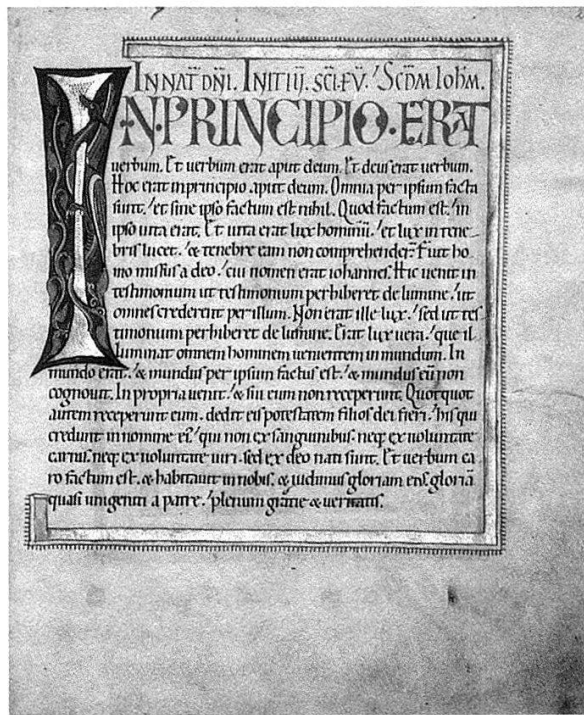 IN NAT̅ DN̅I. INITIU̅. SC̅I. EV̅. SCD̅M IOH̅M.
IN·PRINCIPIO·ERAT
uerbum. Et uerbum erat aput deum. Et deus erat uerbum.
Hoc erat in principio aput deum. Omnia per ipsum facta
sunt. et sine ipso factum est nihil. Quod factum est. in
ipso uita erat. Et uita erat lux hominū. et lux in tene-
bris lucet. & tenebre eam non comprehender̄. Fuit ho
mo missus a deo. cui nomen erat iohannes. Hic uenit in
testimonium ut testimonium perhiberet de lumine. ut
omnes crederent per illum. Non erat ille lux. sed ut tes
timonium perhiberet de lumine. Erat lux uera. que il
luminat omnem hominem uenientem in mundum. In
mundo erat. & mundus per ipsum factus est. & mundus eū non
cognouit. In propria uenit. & sui eum non receperunt. Quotquot
autem receperunt eum. dedit eis potestatem filios dei fieri. his qui
credunt in nomine ei᾽. qui non ex sanguinibus. neq; ex uoluntate
carnis. neq; ex uoluntate uiri. sed ex deo nati sunt. Et uerbum ca
ro factum est. & habitauit in nobis. & uidimus gloriam ei᾽. gloriā
quasi unigeniti a patre. plenum gratie & ueritatis.